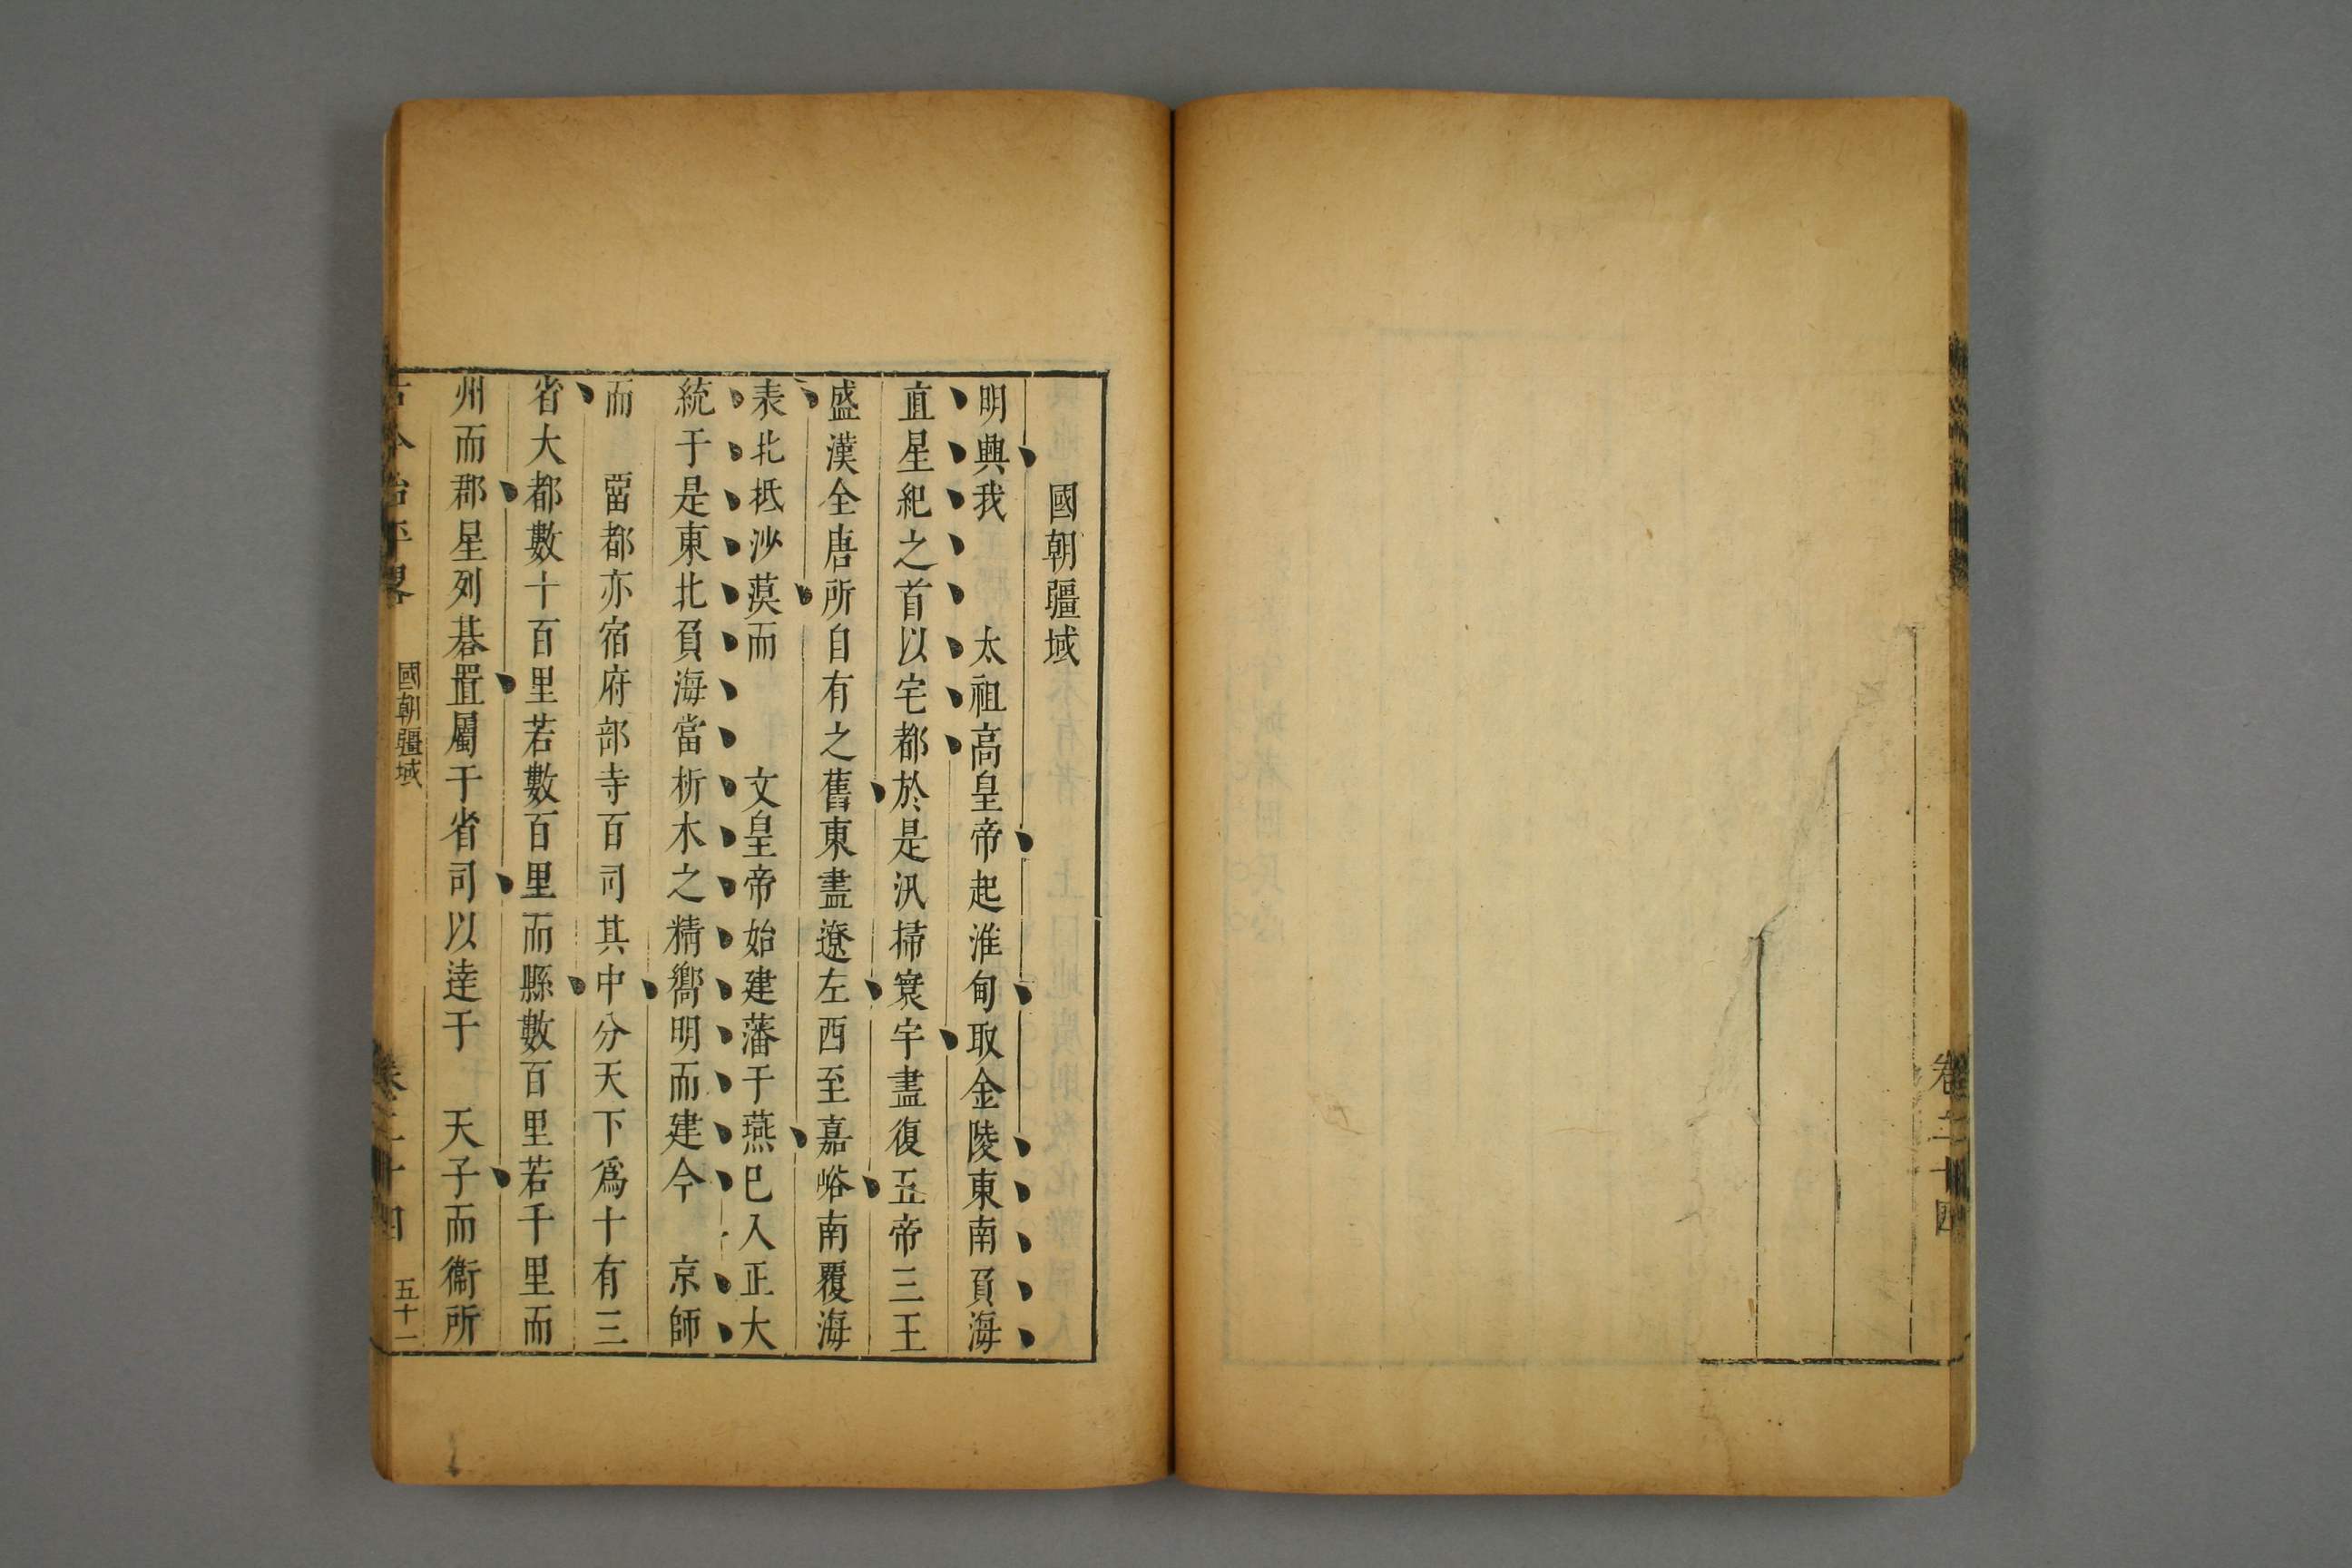 卷二十四
國朝疆域
明興我　太祖高皇帝起淮甸取金陵東南負海
直星紀之首以宅都於是汛掃寰宇盡復五帝三王
盛漢全唐所自有之舊東盡遼左西至嘉峪南覆海
表北抵沙漠而　文皇帝始建藩于燕巳入正大
統于是東北負海當析木之精嚮明而建今　京師
而　畱都亦宿府部寺百司其中分天下爲十有三
省大都數十百里若數百里而縣數百里若千里而
州而郡星列碁置屬于省司以達于　天子而衞所
古今治平畧
國朝疆域
卷二十四
五十一